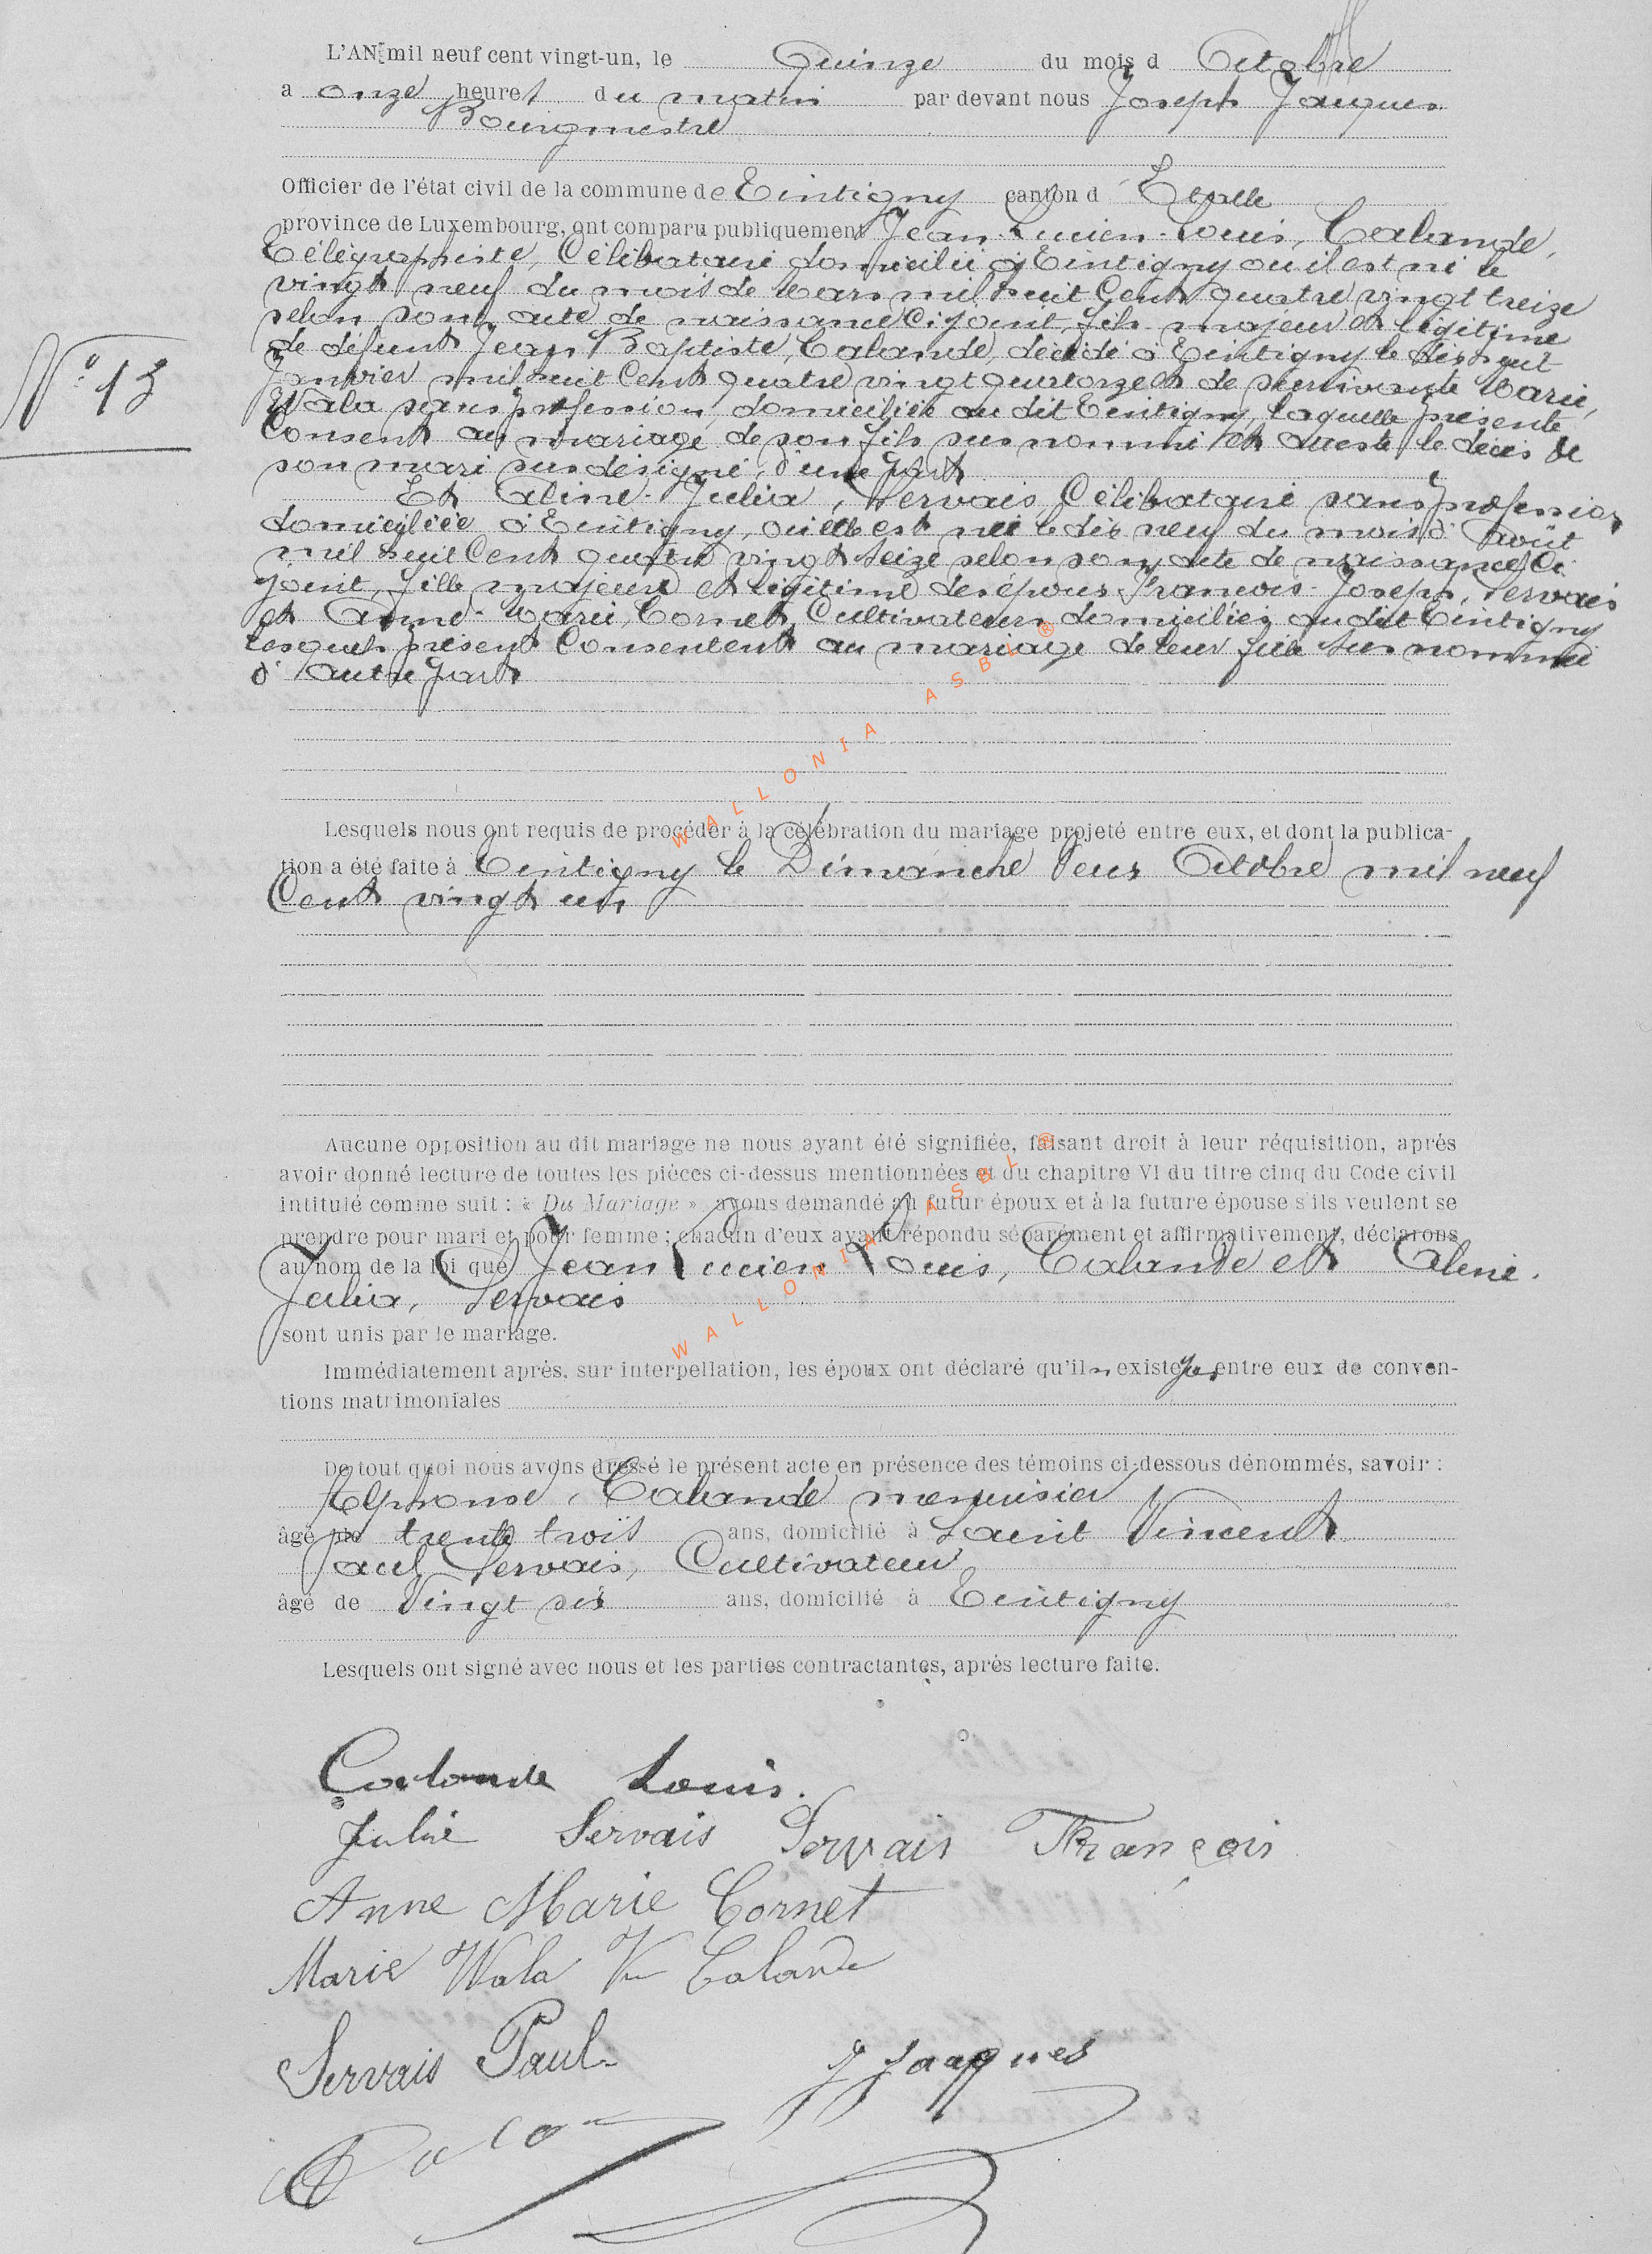 L'AN mil neuf cent vingt-un, le Quinze du mois d Octobre
a onze heures du matin par devant nous Joseph Jacques
Bourgmestre
Officier de l'état civil de la commune de Tintigny canton d Etalle
province de Luxembourg, ont comparu publiquement Jean-Lucien-Louis, Calande,
Télégraphiste, Célibataire domicilié à Tintigny où il est né le
vingt neuf du mois de Mars mil huit Cent quatre vingt treize
selon son acte de naissance Ci joint, fils majeur et légitime
de défunt Jean Baptiste, Calande, décédé à Tintigny le dix huit
Janvier mil huit Cent quatre vingt quatorze et de survivante Marie,
Wala sans profession, domiciliée au dit Tintigny, laquelle présente
Consent au mariage de son fils sus nommé et atteste le décès de
son mari sus désigné, d'une part
Et Aline-Julia, Servais, Célibataire sans profession
domiciliée à Tintigny, où elle est née le dix neuf du mois d'Août
mil huit Cent quatre vingt seize selon son acte de naissance Ci
joint, fille majeure et légitime des époux François-Joseph, Servais
et Anne-Marie, Cornet, Cultivateurs domiciliés au dit Tintigny
lesquels présent Consentent au mariage de leur fille sus nommée
d'autre part
Lesquels nous ont requis de procéder à la célébration du mariage projeté entre eux, et dont la publica-
tion a été faite à Tintigny le Dimanche deux Octobre mil neuf
Cent vingt un
Aucune opposition au dit mariage ne nous ayant été signifiée, faisant droit à leur réquisition, après
avoir donné lecture de toutes les pièces ci-dessus mentionnées et du chapitre VI du titre cinq du Code civil
intitulé comme suit : « Du Mariage » avons demandé au futur époux et à la future épouse s'ils veulent se
prendre pour mari et pour femme ; chacun d'eux ayant répondu séparément et affirmativement, déclarons
au nom de la loi que Jean Lucien Louis, Calande et Aline.
Julia, Servais
sont unis par le mariage.
Immédiatement après, sur interpellation, les époux ont déclaré qu'il n existe pas entre eux de conven-
tions matrimoniales
De tout quoi nous avons dressé le présent acte en présence des témoins ci-dessous dénommés, savoir :
Alphonse, Calande menuisier
âgé de trente trois ans, domicilié à Saint Vincent
Paul Servais, Cultivateur
âgé de Vingt six ans, domicilié à Tintigny
Lesquels ont signé avec nous et les parties contractantes, après lecture faite.
N° 13
Calande Louis.
Julie Servais Servais François
Anne Marie Cornet
Marie Wala Vve Calande
Servais Paul
J Jacques
WALLONIA ASBL ®
WALLONIA ASBL ®